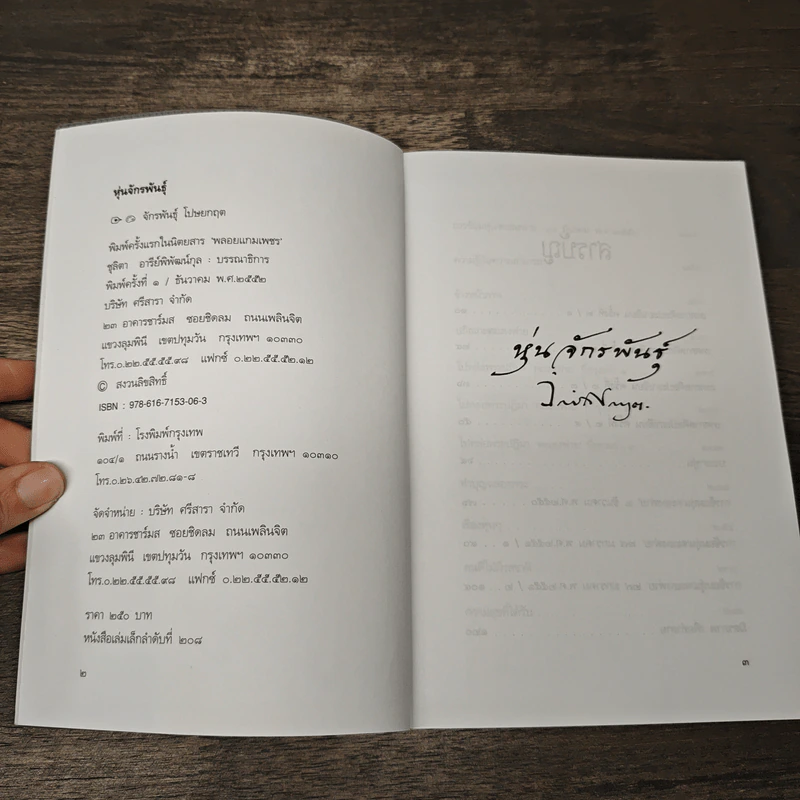 หุ่นจักรพันธุ์
จักรพันธุ์ โปษยกฤต
พิมพ์ครั้งแรกในนิตยสาร 'พลอยแกมเพชร'
ชุลิตา อารีย์พิพัฒน์กุล : บรรณาธิการ
พิมพ์ครั้งที่ ๑ / ธันวาคม พ.ศ.๒๕๕๒
บริษัท ศรีสารา จำกัด
๒๓ อาคารชาร์มส ซอยชิดลม ถนนเพลินจิต
แขวงลุมพินี เขตปทุมวัน กรุงเทพฯ ๑๐๓๓๐
โทร.๐.๒๒.๕๕.๕๕.๙๘ แฟกซ์ ๐.๒๒.๕๕.๕๒.๑๒
© สงวนลิขสิทธิ์
ISBN : 978-616-7153-06-3
พิมพ์ที่ : โรงพิมพ์กรุงเทพ
๑๐๙/๑ ถนนรางน้ำ เขตราชเทวี กรุงเทพฯ ๑๐๓๑๐
โทร.๐.๒๖.๔๒.๗๒.๘๑-๘
จัดจำหน่าย : บริษัท ศรีสารา จำกัด
๒๓ อาคารชาร์มส ซอยชิดลม ถนนเพลินจิต
แขวงลุมพินี เขตปทุมวัน กรุงเทพฯ ๑๐๓๓๐
โทร.๐.๒๒.๕๕.๕๕.๙๘ แฟกซ์ ๐.๒๒.๕๕.๕๒.๑๒
ราคา ๒๕๐ บาท
หนังสือเล่มเล็กลำดับที่ ๒๐๘
๒
หุ่นจักรพันธุ์
๓